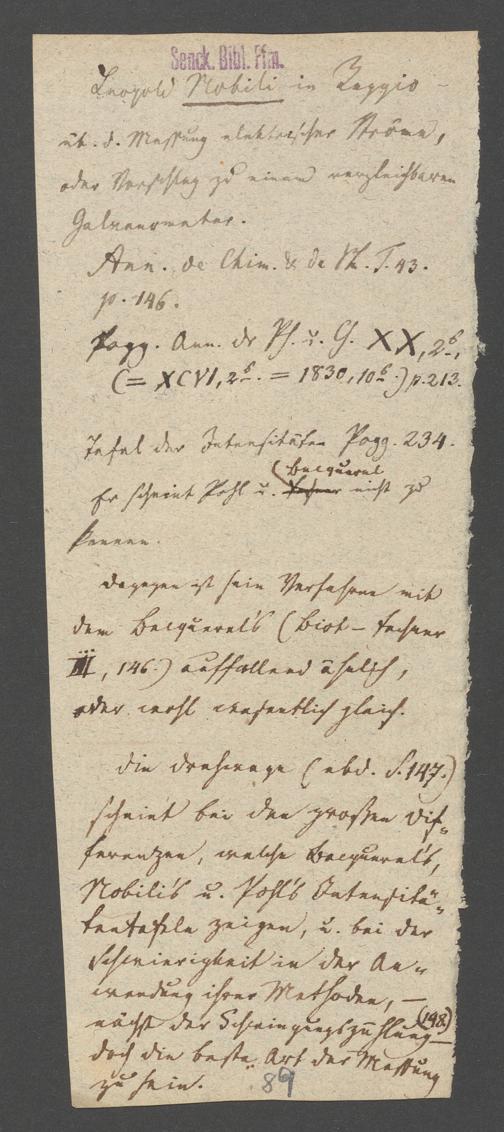 Senck. Bibl. Ffm.
Leopold Nobili in Reggio –
üb. d. Messung elektrischer Ströme,
oder Vorschlag zu einem vergleichbaren
Galvanometer.
Ann. de Chim. & de Ph. T. 43.
p. 146.
Pogg. Ann. dr Ph. u. Ch. XX, 2s,
(= XCVI, 2s. = 1830, 10s.) p. 213.
Tafel der Intensitäten Pogg. 234.
(Becquerel
Er scheint Pohl u. Fechner nicht zu
kennen.
Dagegen ist sein Verfahren mit
dem Becquerel's (Biot – Fechner
III, 146.) auffallend ähnlich,
oder wohl wesentlich gleich.
Die Drehwage (ebd. S. 147.)
scheint bei den großen Dif-
ferenzen, welche Becquerel's,
Nobili's u. Pohl's Intensitä-
tentafeln zeigen, u. bei der
Schwierigkeit in der An-
wendung ihrer Methoden, –
(148.)
nächst der Schwingungszählung –
doch die beste Art der Messung
zu sein.
89